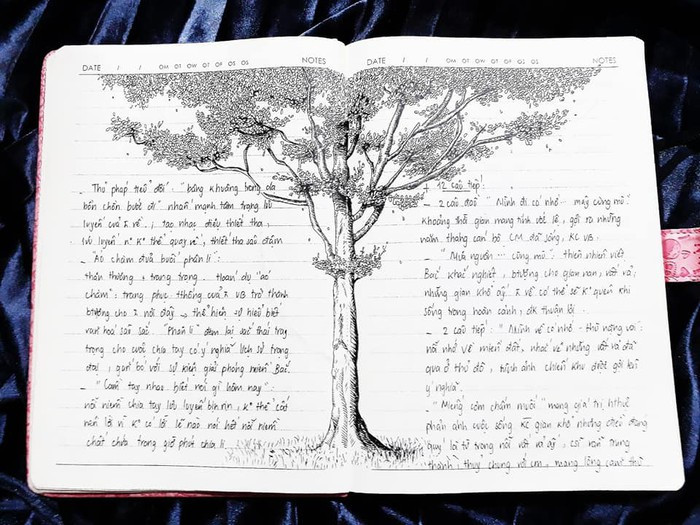 DATE / / NOTES
- Thủ pháp tiểu đối: "bâng khuâng trong dạ
bồn chồn bước đi" nhấn mạnh tâm trạng lưu
luyến của 2 vế; tạo nhạc điệu thiết tha,
lưu luyến
- "Áo chàm đưa buổi phân li":
thân thương, trang trọng. Hoán dụ "áo
chàm": trang phục tthống của VB trở thành
btượng cho nơi đây → thể hiện sự hiểu biết
văn hoá sâu sắc. "Phân li" đem lại sắc thái trang
trọng cho cuộc chia tay có ý nghĩa lịch sử trọng
đại, gắn bó với sự kiện giải phóng miền Bắc.
- "Cầm tay nhau biết nói gì hôm nay":
nỗi niềm chia tay lưu luyến bịn rịn, k° thể cất
nên lời vì k° có lời lẽ nào nói hết nỗi niềm
chất chứa trong giờ phút chia li.
DATE / / NOTES
+ 12 câu tiếp:
- 2 câu đầu "Mình đi có nhớ... mây cùng mù":
khoảng thời gian mang tính ước lệ, gợi ra những
năm tháng cán bộ CM đã sống, KC VB.
- "Mưa nguồn ... cùng mù": thiên nhiên Việt
Bắc khắc nghiệt, btượng cho gian nan, vất vả;
những gian khổ ấy về có thể sẽ k° quên khi
sống trong hoàn cảnh, đk thuận lợi.
- 2 câu tiếp: "Mình về có nhớ - thù nặng vai":
nỗi nhớ về miền đất, nhắc về những vất vả đã
qua ở thủ đô, hình ảnh chiến khu được gợi lại
ý nghĩa.
- "Miếng cơm chấm muối" mang giá trị hthực
phản ánh cuộc sống KC gian khổ nhưng
quý lại từ trong nỗi vất vả ấy, csĩ vẫn trung
thành, thuỷ chung với cm, mang lòng căm thù